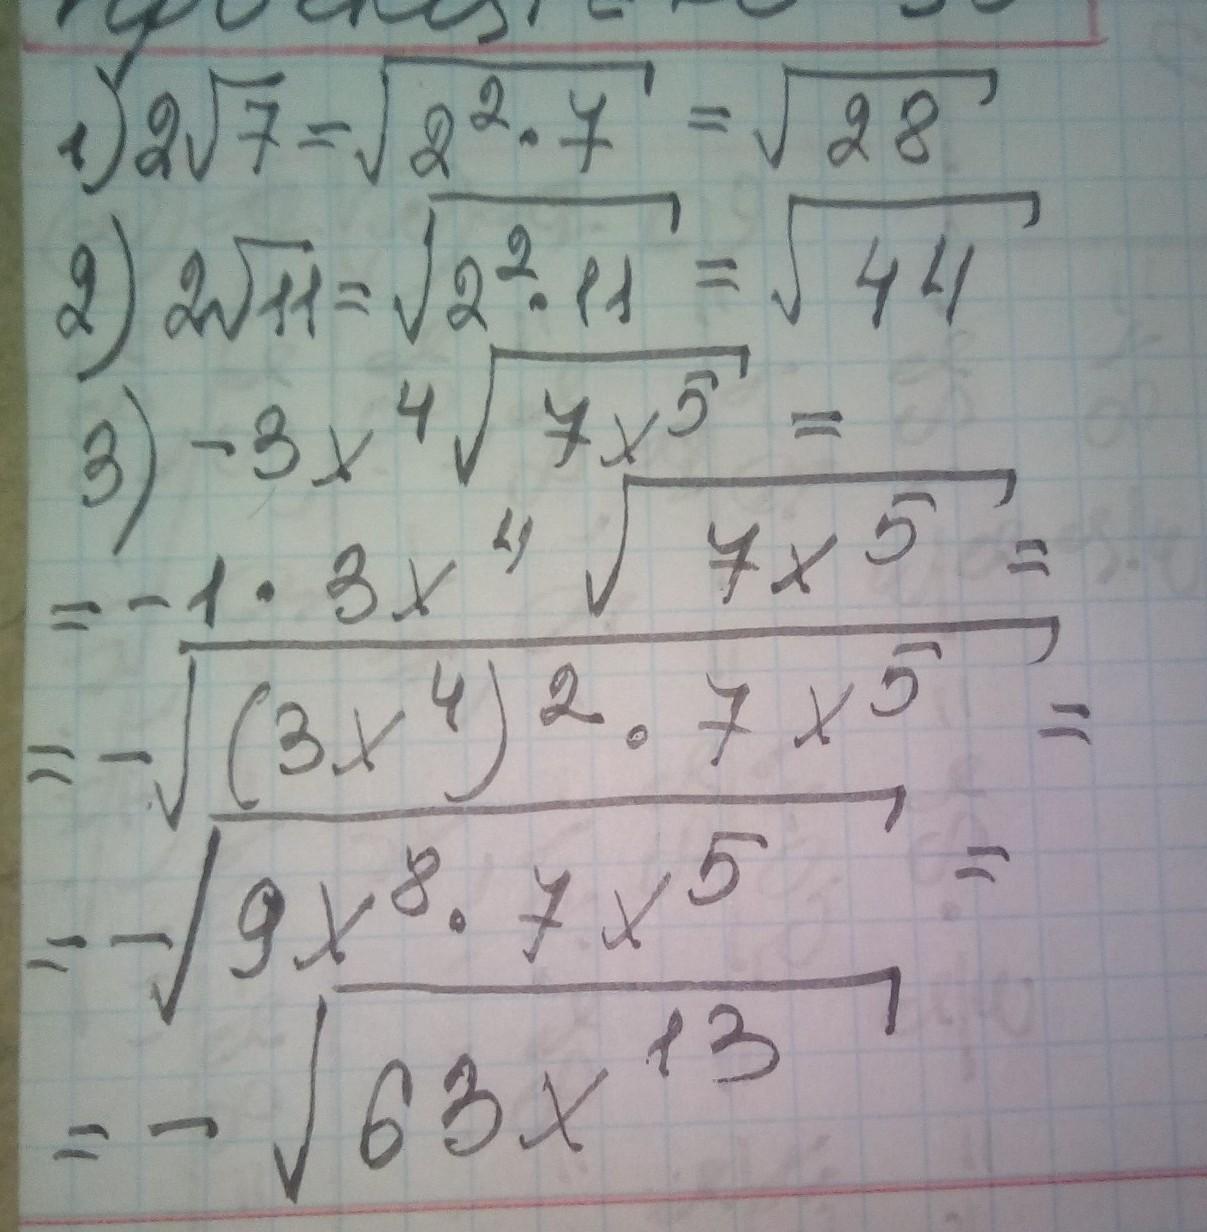 1) 2√7 = √(2² · 7) = √28
2) 2√11 = √(2² · 11) = √44
3) -3x⁴√(7x⁵) =
= -1 · 3x⁴ √(7x⁵) =
= -√((3x⁴)² · 7x⁵) =
= -√(9x⁸ · 7x⁵) =
= -√(63x¹³)